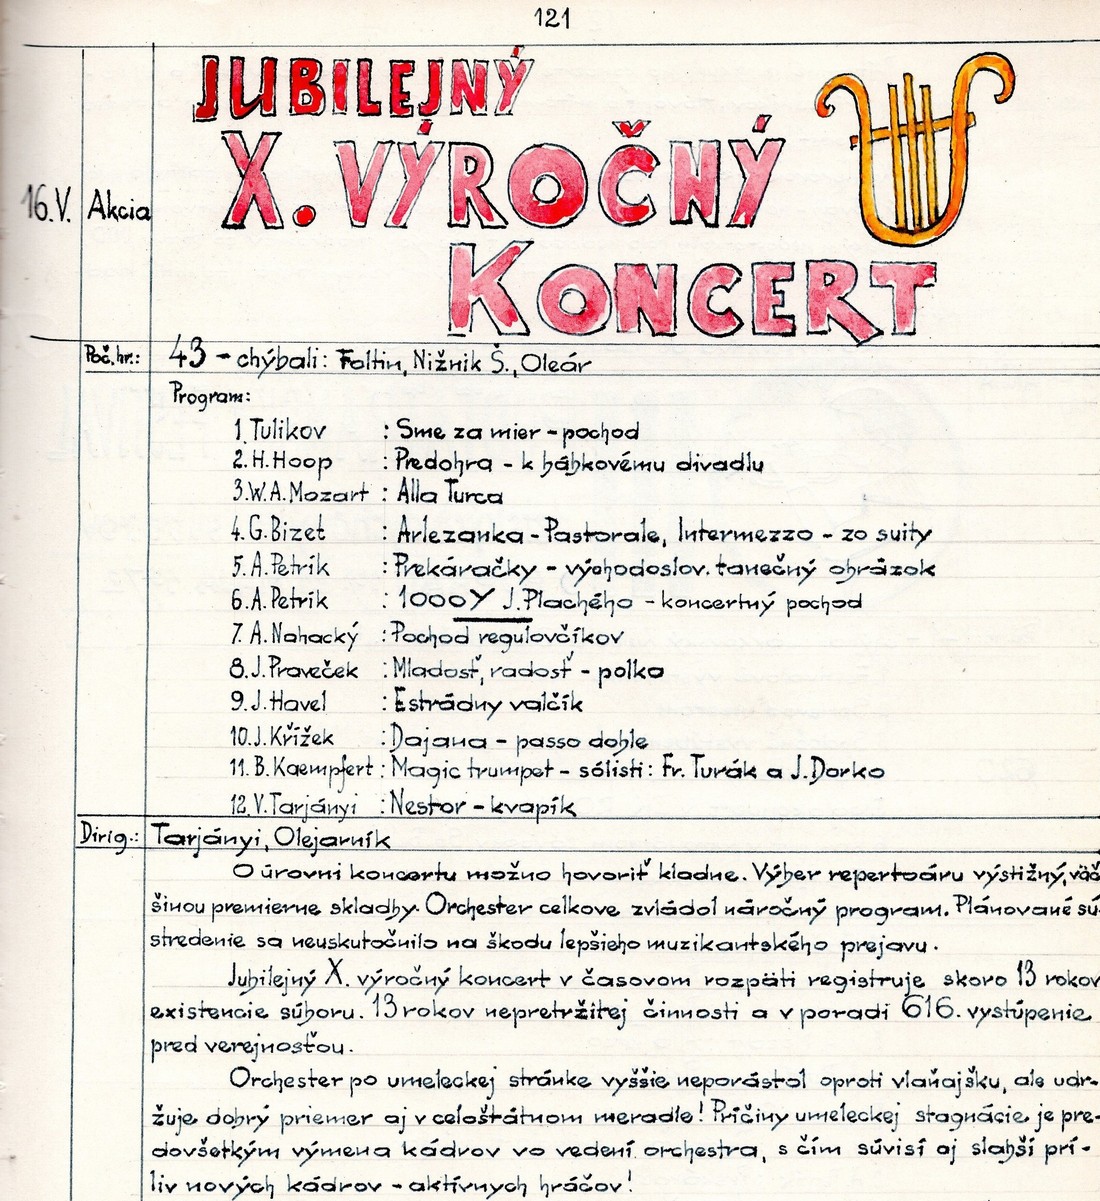 121
JUBILEJNÝ
X. VÝROČNÝ
KONCERT
16.V. Akcia
Poč.hr.: 43 - chýbali: Foltin, Nižnik Š., Oleár
Program:
1. Tulikov : Sme za mier - pochod
2. H. Hoop : Predohra - k bábkovému divadlu
3. W.A. Mozart : Alla Turca
4. G. Bizet : Arlezanka - Pastorale, Intermezzo - zo suity
5. A. Petrík : Prekáračky - východoslov. tanečný obrázok
6. A. Petrík : 1000 Y J. Plachého - koncertný pochod
7. A. Nahacký : Pochod regulovčíkov
8. J. Praveček : Mladosť, radosť - polka
9. J. Havel : Estrádny valčík
10. J. Křížek : Dajana - passo doble
11. B. Kaempfert : Magic trumpet - sólisti: Fr. Turák a J. Dorko
12. V. Tarjányi : Nestor - kvapík
Dirig.: Tarjányi, Olejarník
O úrovni koncertu možno hovoriť kladne. Výber repertoáru výstižný, väč
šinou premierne skladby. Orchester celkove zvládol náročný program. Plánované sú-
stredenie sa neuskutočnilo na škodu lepšieho muzikantského prejavu.
Jubilejný X. výročný koncert v časovom rozpäti registruje skoro 13 rokov
existencie súboru. 13 rokov nepretržitej činnosti a v poradí 616. vystúpenie
pred verejnosťou.
Orchester po umeleckej stránke vyššie neporástol oproti vlaňajšku, ale udr-
žuje dobrý priemer aj v celoštátnom meradle! Príčiny umeleckej stagnácie je pre-
dovšetkým výmena kádrov vo vedení orchestra, s čím súvisí aj slabší prí-
liv nových kádrov - aktívnych hráčov!